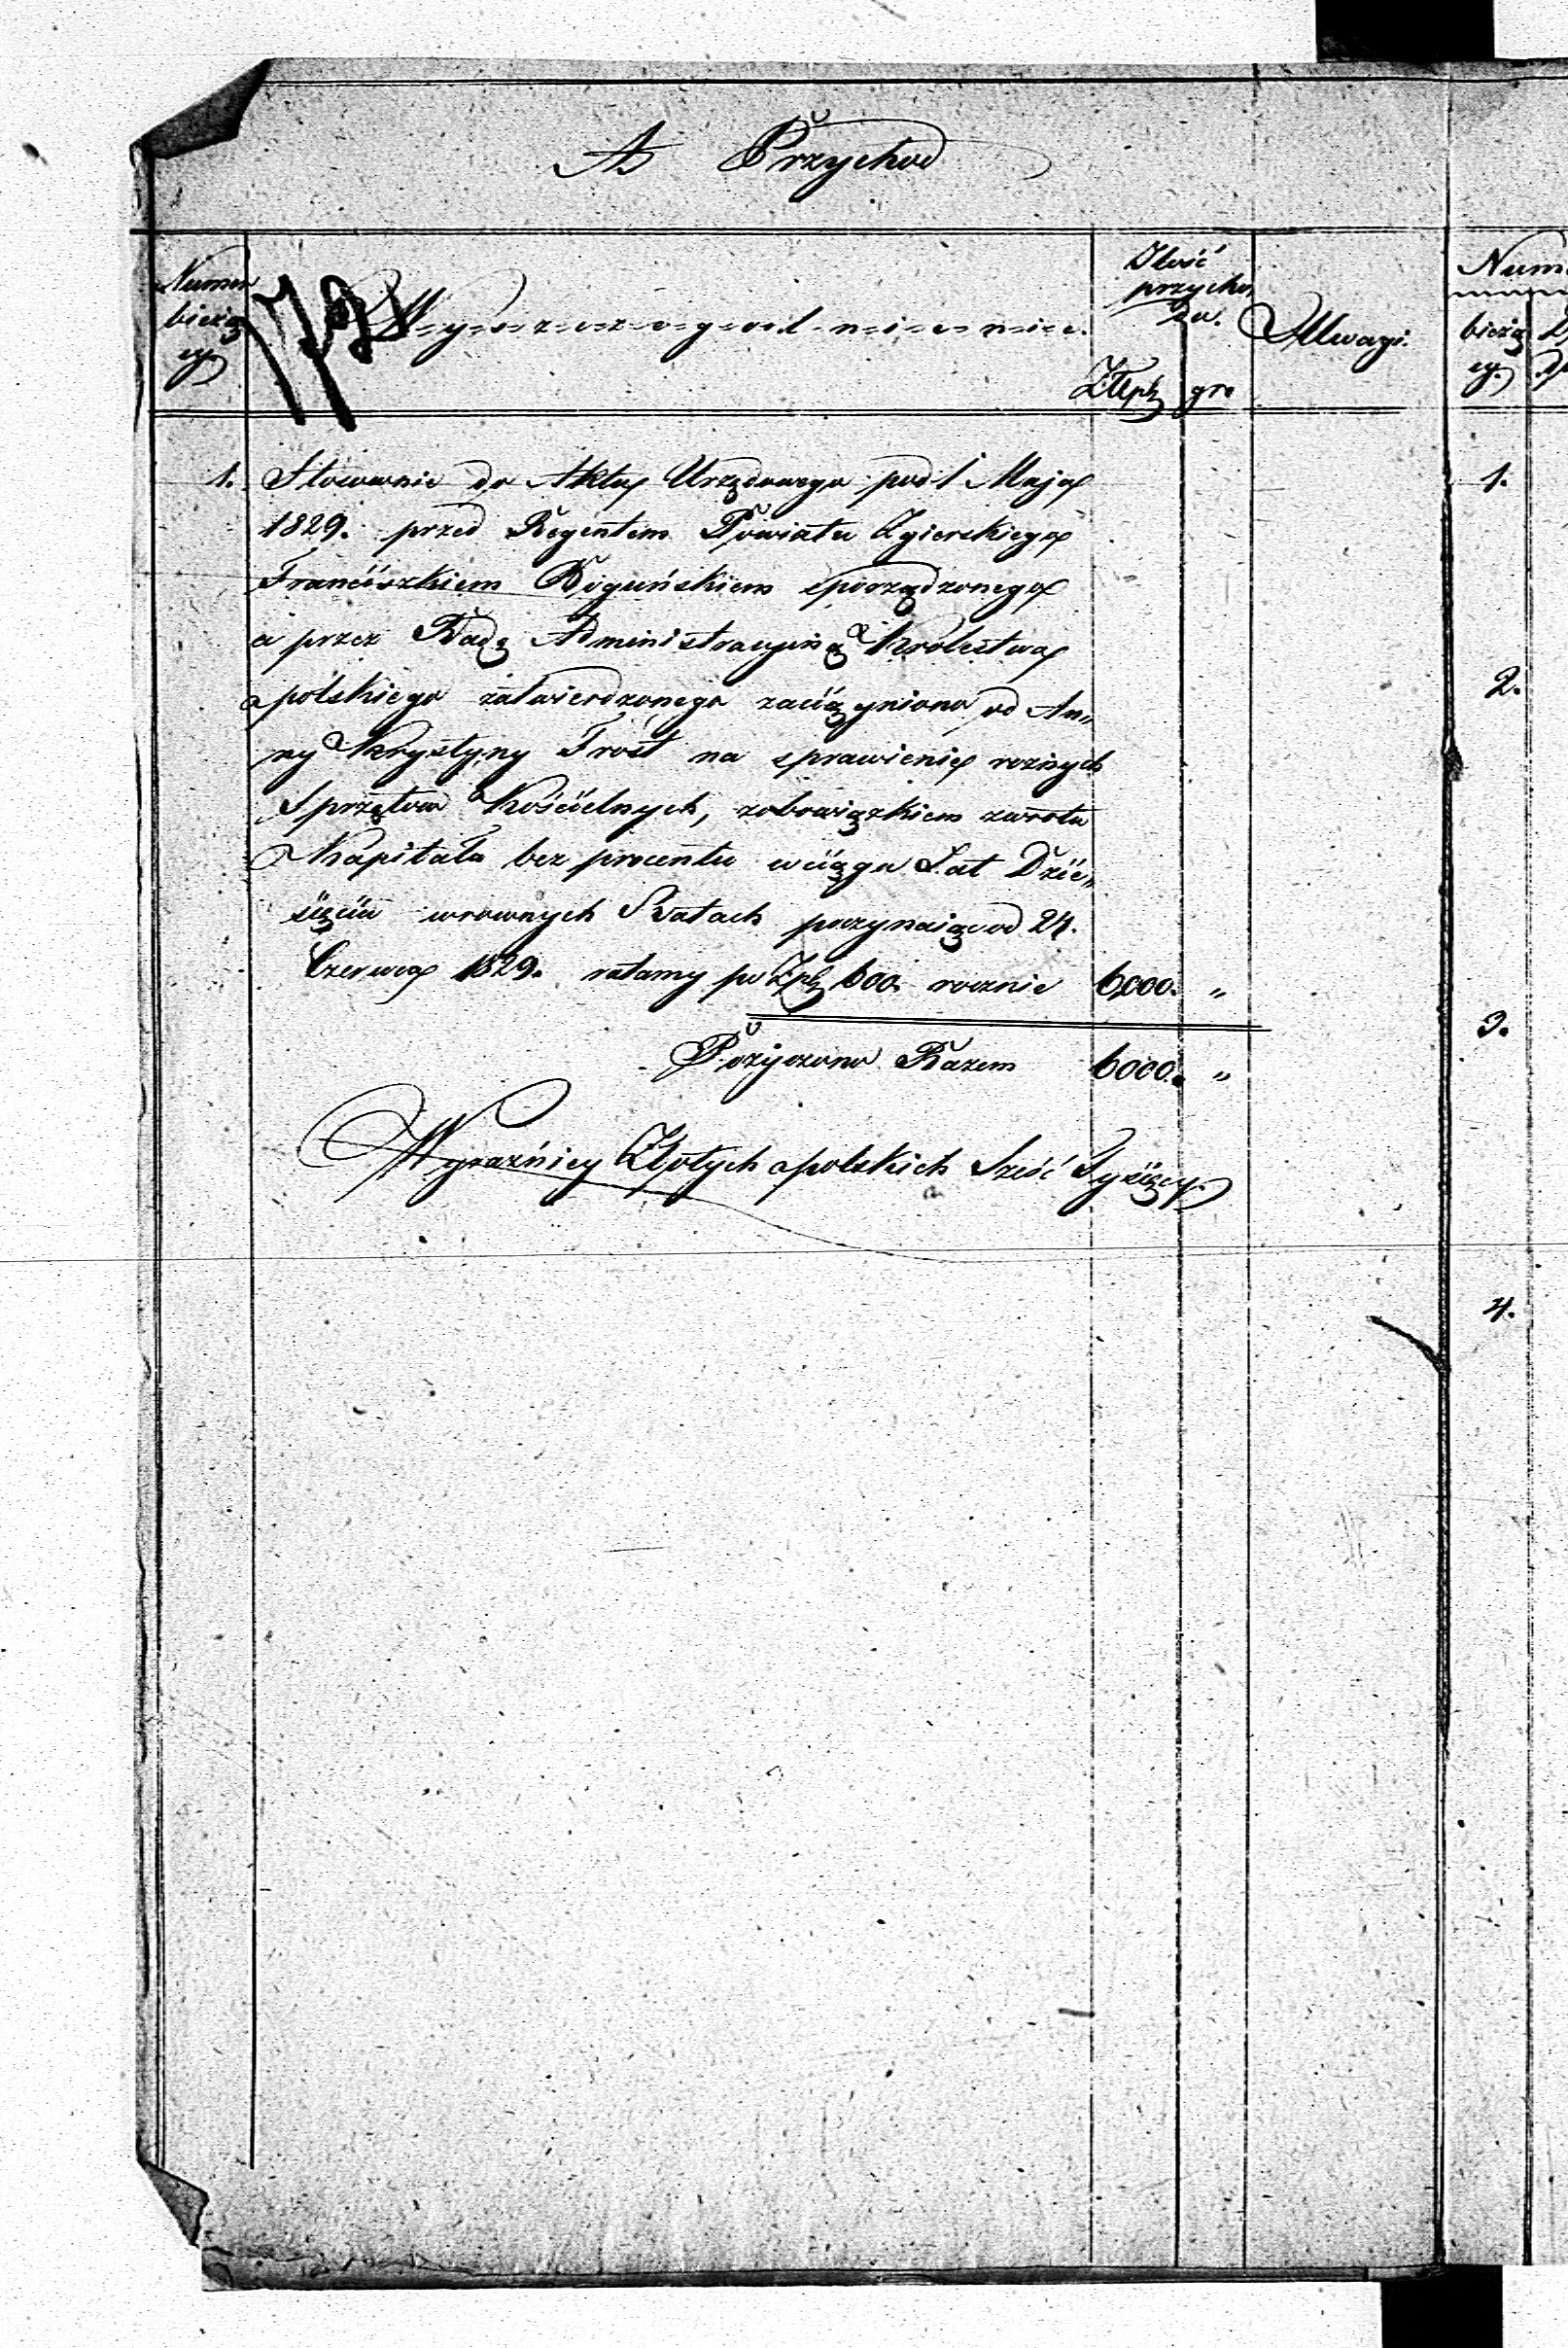 A Przychod
Numer
bieżą
cy
W-y-s-z-c-z-e-g-o-l-n-i-e-n-i-e.
Ilość
przycho
du.
Złłph gro
Uwagi.
Num
bieżą
cy.
1. Stosownie do Aktu Urzędowego pod 1 Maja
1829. przed Regentem Powiatu Zgierskiego
Franciszkiem Boguńskiem sporządzonego
a przez Radę Administracyiną Krolestwa
polskiego zatwierdzonego zaciągniono od An„
ny Krystyny Trost na sprawienie roznych
Sprzętow Kościelnych, zobowiązkiem zwrotu
Kapitała bez procentu wciągu Lat Dzie„
sięciu wrownych Ratach poczynaiąc od 24.
Czerwca 1829. ratamy po Zph 600. rocznie 6,000. „
Pożyczono Razem 6000. „
Wyrazniey Złotych polskich Sześć Tysięcy.
1.
2.
3.
4.